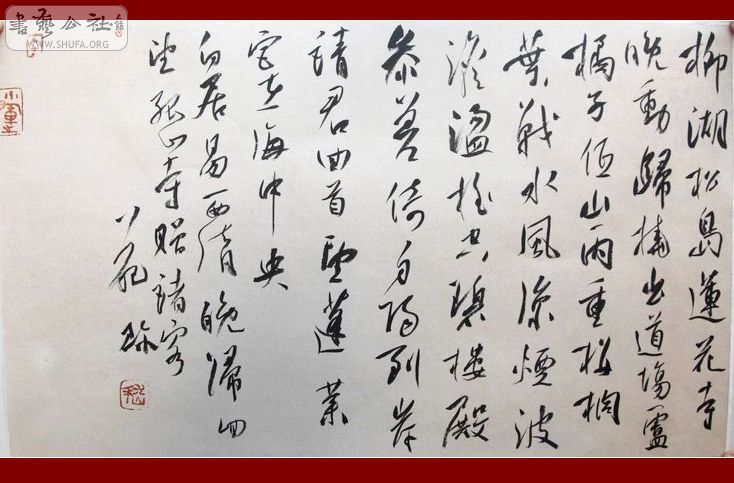 書藝公社
WWW.SHUFA.ORG
柳湖松島蓮花寺
晚動歸橈出道場盧
橘子低山雨重栟櫚
葉戰水風涼煙波
澹盪搖空碧樓殿
參差倚夕陽到岸
請君回首望蓬萊
宮在海中央
白居易西湖晚歸回
望孤山寺贈諸客